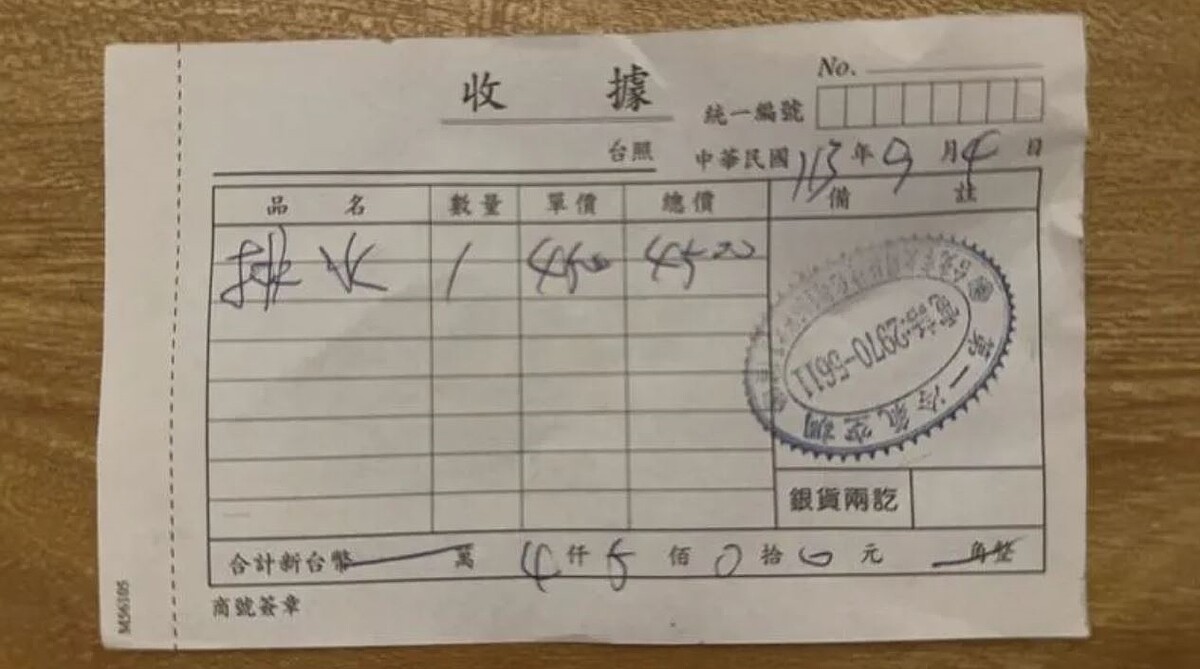 收 據
No.
統一編號
台照 中華民國 113 年 9 月 4 日
品 名 數量 單價 總價 備 註
排水 1 4500 4500
第一冷氣空調
電話:2970-5611
銀貨兩訖
合計新台幣 萬 4 仟 5 佰 0 拾 0 元 角整
商號簽章
M56105